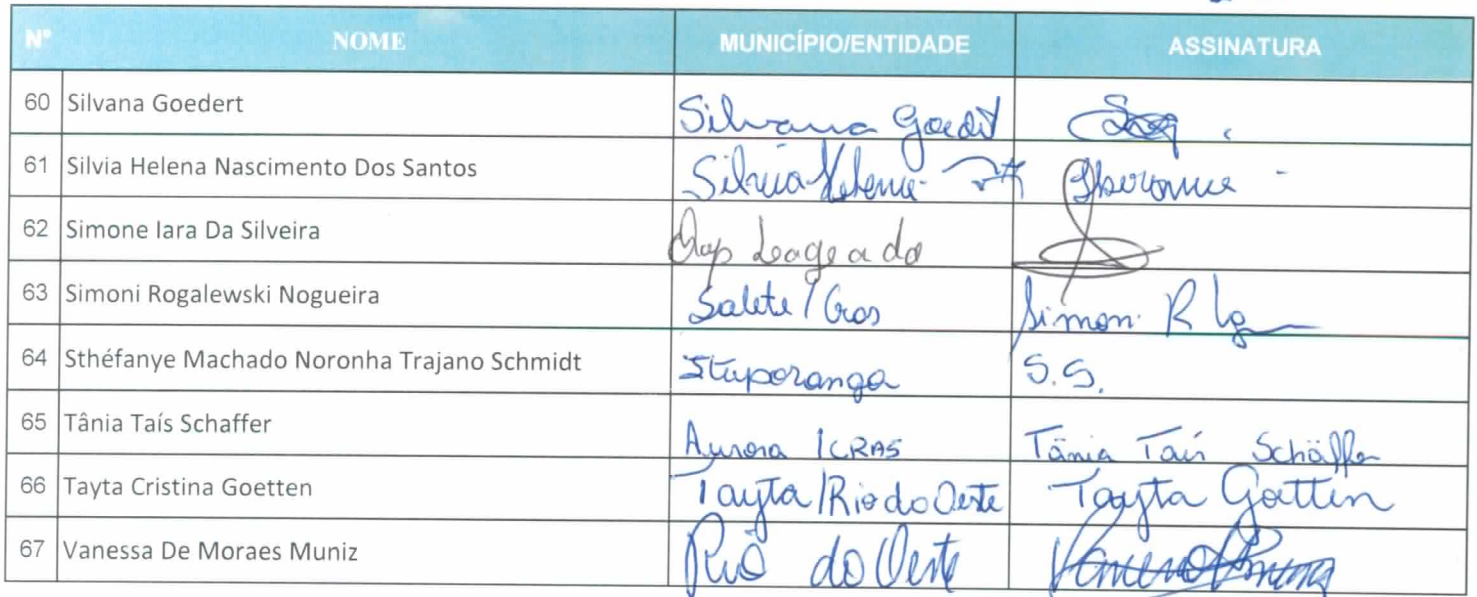 Nº NOME MUNICÍPIO/ENTIDADE ASSINATURA
60 Silvana Goedert Silvana Goedit
61 Silvia Helena Nascimento Dos Santos Silvia Helena
62 Simone Iara Da Silveira Chap Leageado
63 Simoni Rogalewski Nogueira Salete / Cras Simoni R
64 Sthéfanye Machado Noronha Trajano Schmidt Ituporanga S.S.
65 Tânia Taís Schaffer Aurora / CRAS Tânia Taís Schäffer
66 Tayta Cristina Goetten Tayta / Rio do Oeste Tayta Goetten
67 Vanessa De Moraes Muniz Rio do Oeste